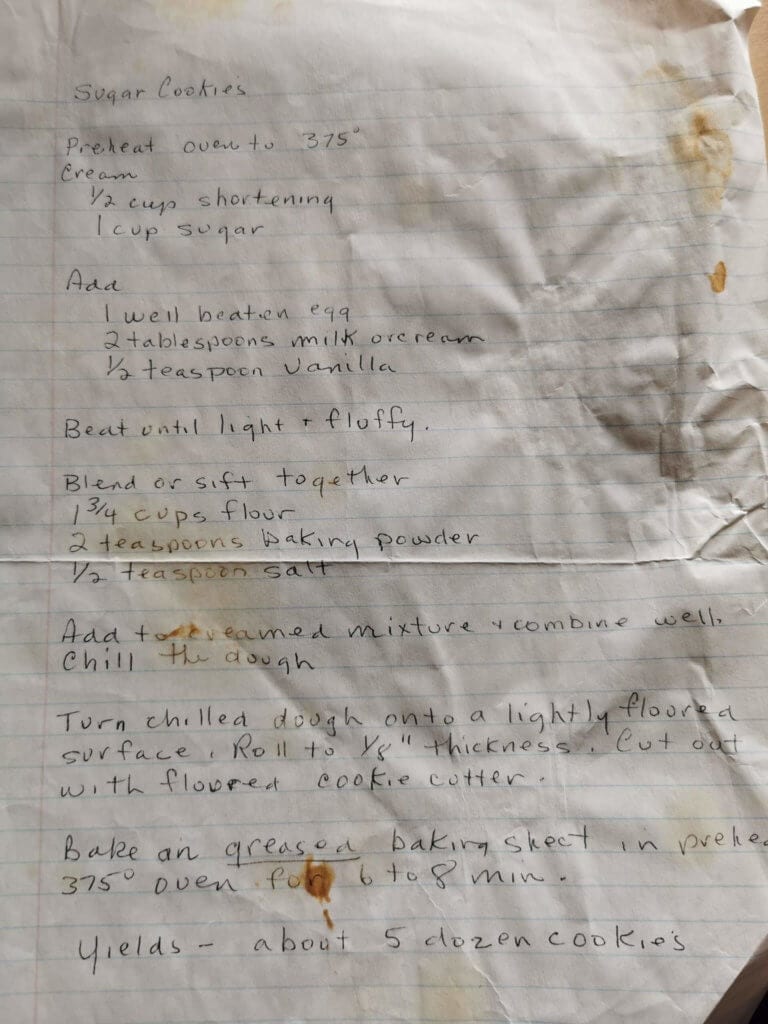 Sugar Cookies
Preheat oven to 375°
Cream
1/2 cup shortening
1 cup sugar
Add
1 well beaten egg
2 tablespoons milk or cream
1/2 teaspoon vanilla
Beat until light + fluffy.
Blend or sift together
1 3/4 cups flour
2 teaspoons baking powder
1/2 teaspoon salt
Add to creamed mixture + combine well.
Chill the dough
Turn chilled dough onto a lightly floured
surface. Roll to 1/8" thickness. Cut out
with floured cookie cutter.
Bake on greased baking sheet in prehea
375° oven for 6 to 8 min.
Yields - about 5 dozen cookies